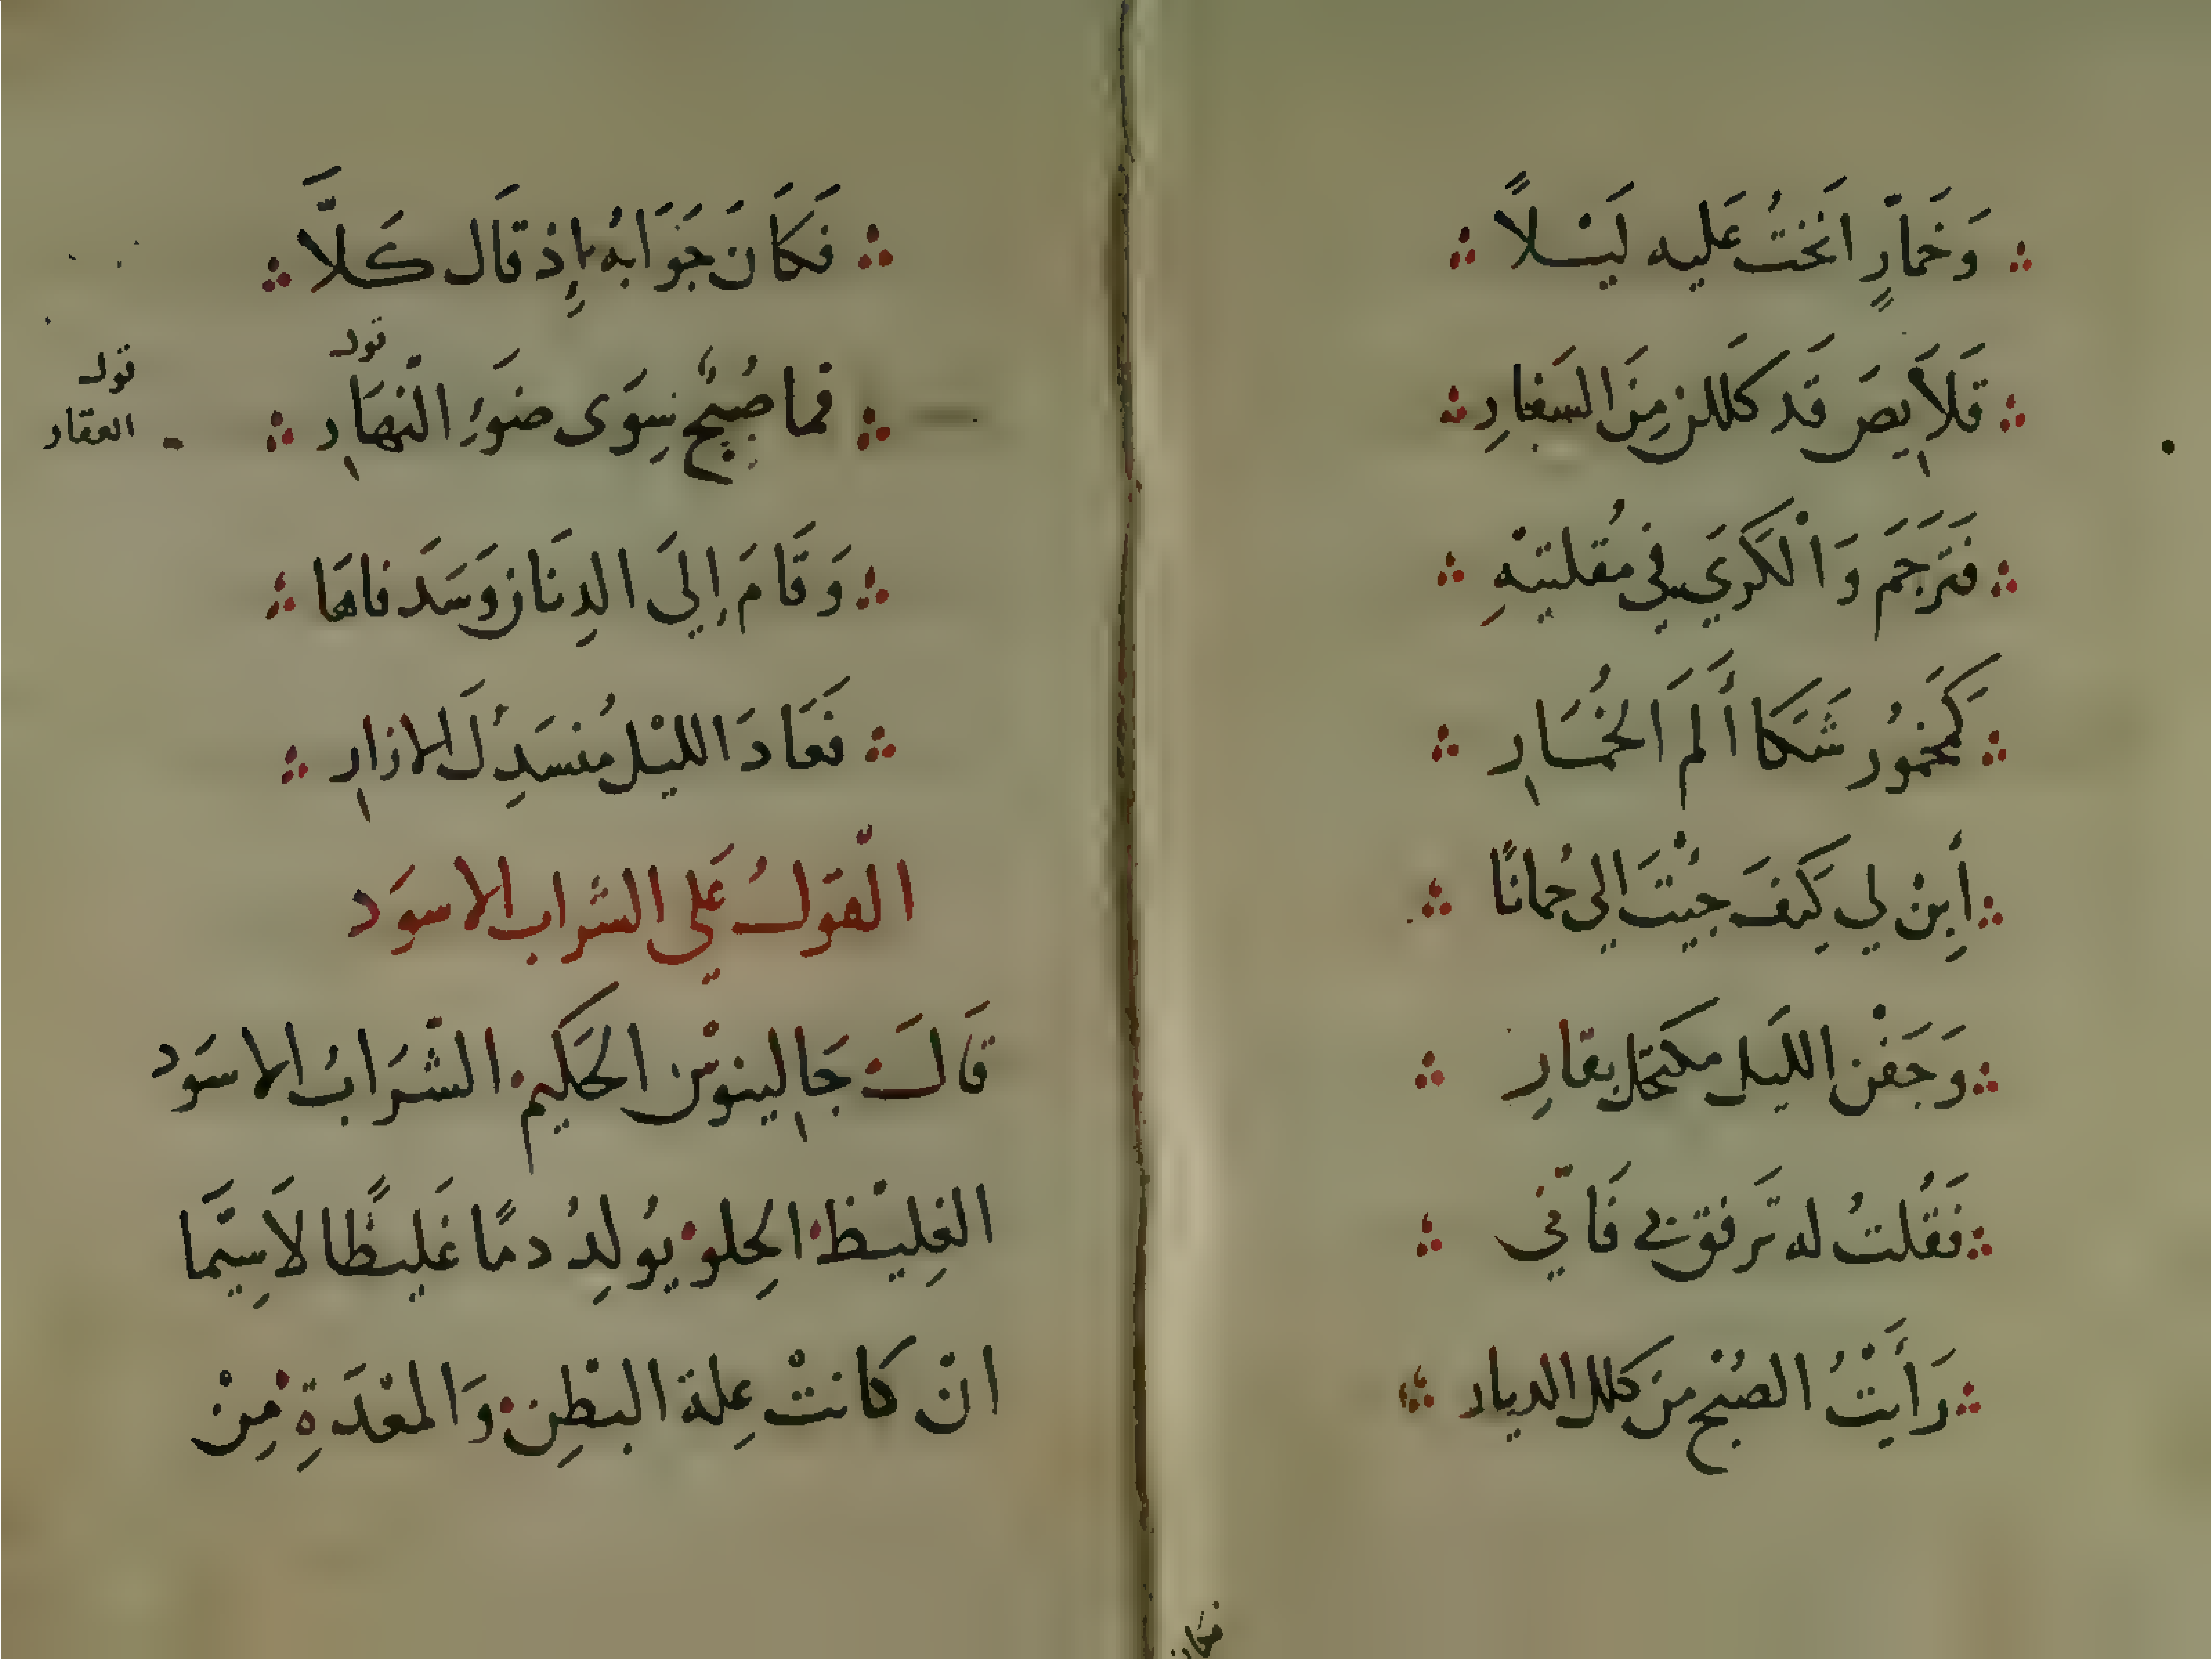 وَخَمارٍ انَختُ عَليه لَيْلاً
قلاَيِصَ قَد كَللن مِنَ السَفارِ
فتَرَجَم وَالْكَرَي في مُقلتيْهِ
كَمَخمُورِ شَكا أَلمَ الخُمَارِ
أَبِنْ لي كَيفَ جيْتَ الي حُمانًا
وَجَفْن الليَل مكتحل بقارِ
فَقُلتُ له تَرفق بي فَانّي
رَأَيْتُ الصُبْح من كلل الديار
فكان
فَكَانَ جَوَابهُ بإِذ قَال كَلاَّ
فما صُبحٌ سِوَى ضَوءِ الْنهَارِ
قول
العقار
وَقَامَ إِليَ الدِنَان وَسَد فاهَا
فَعَادَ الليْل مُنسَدِل الازارِ
الْقوَلُ عَلي الشراب الاسوَد
قَالَ جَالِينوسْ الحَكيم الشرَابُ الاسوَد
الغِليْظ الحِلو يُولدُ دمًا غَليظًا لاَسِيَّما
انْ كانتْ عِلة البطْنِ وَالمعْدَةِ مِنْ